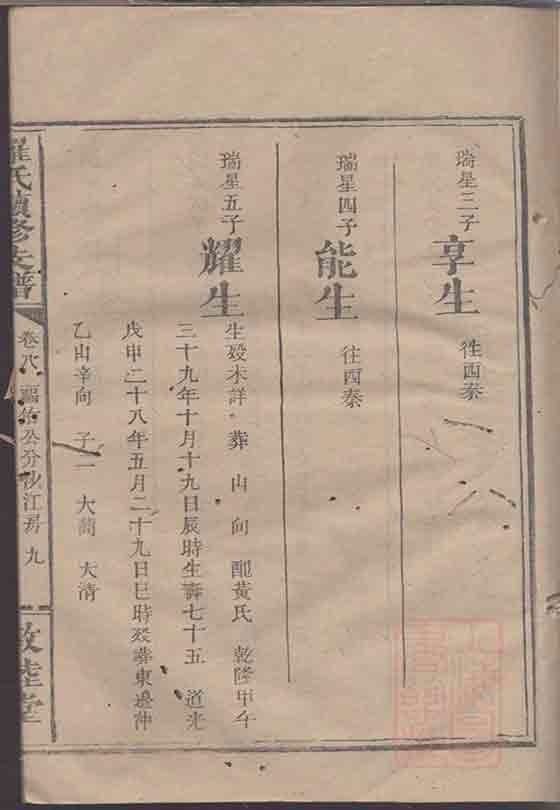 瑞星三子
享生
徃西秦
瑞星四子
能生
往西秦
瑞星五子
耀生
生殁未詳 葬 山 向 配黃氏 乾隆甲午
三十九年十月十九日辰時生壽七十五 道光
戊申二十八年五月二十九日巳時殁葬東邊沖
乙山辛向 子二 大蘭 大清
羅氏續修支譜
卷八 福佑公分沙江房 九
敦睦堂